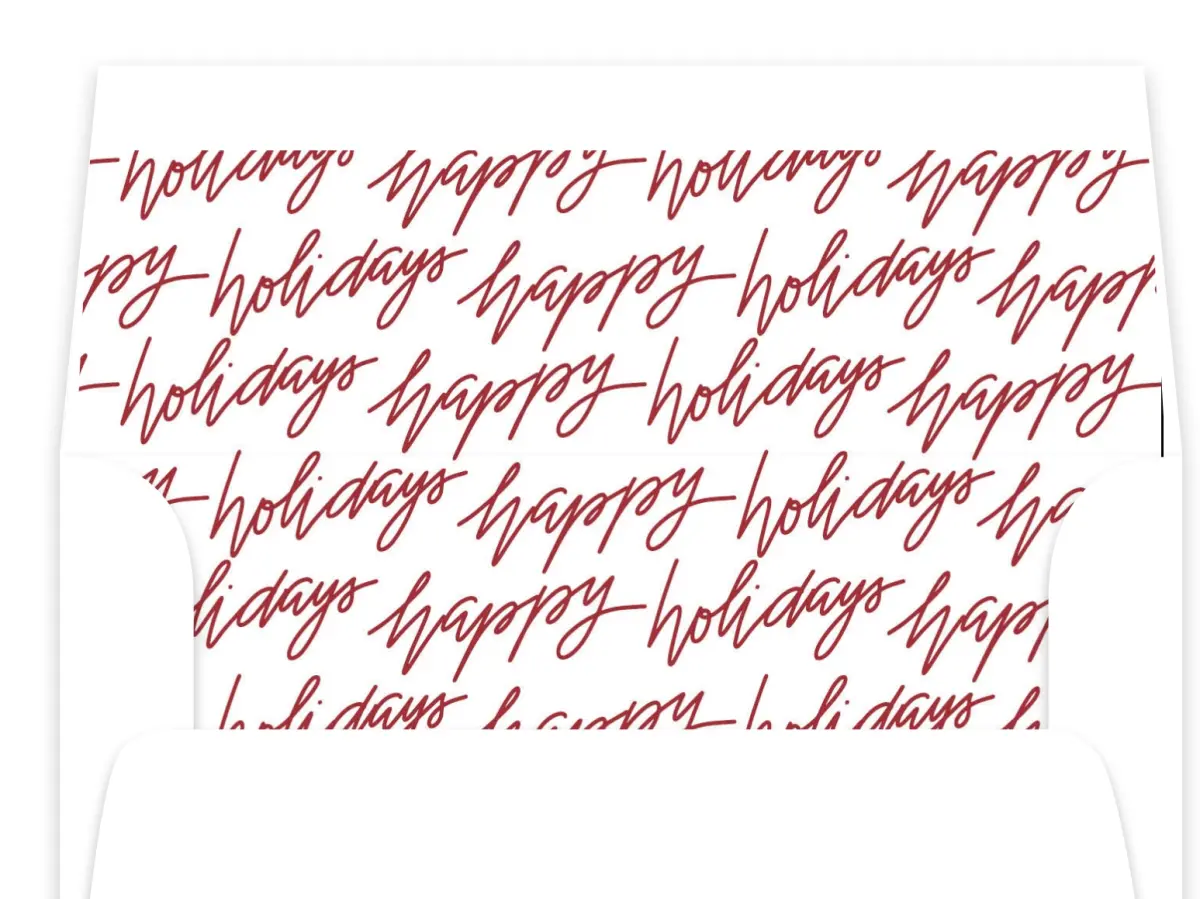 holidays happy holidays happy
py holidays happy holidays happy
holidays happy holidays happy
holidays happy holidays ha
lidays happy holidays happ
holidays happy holidays h